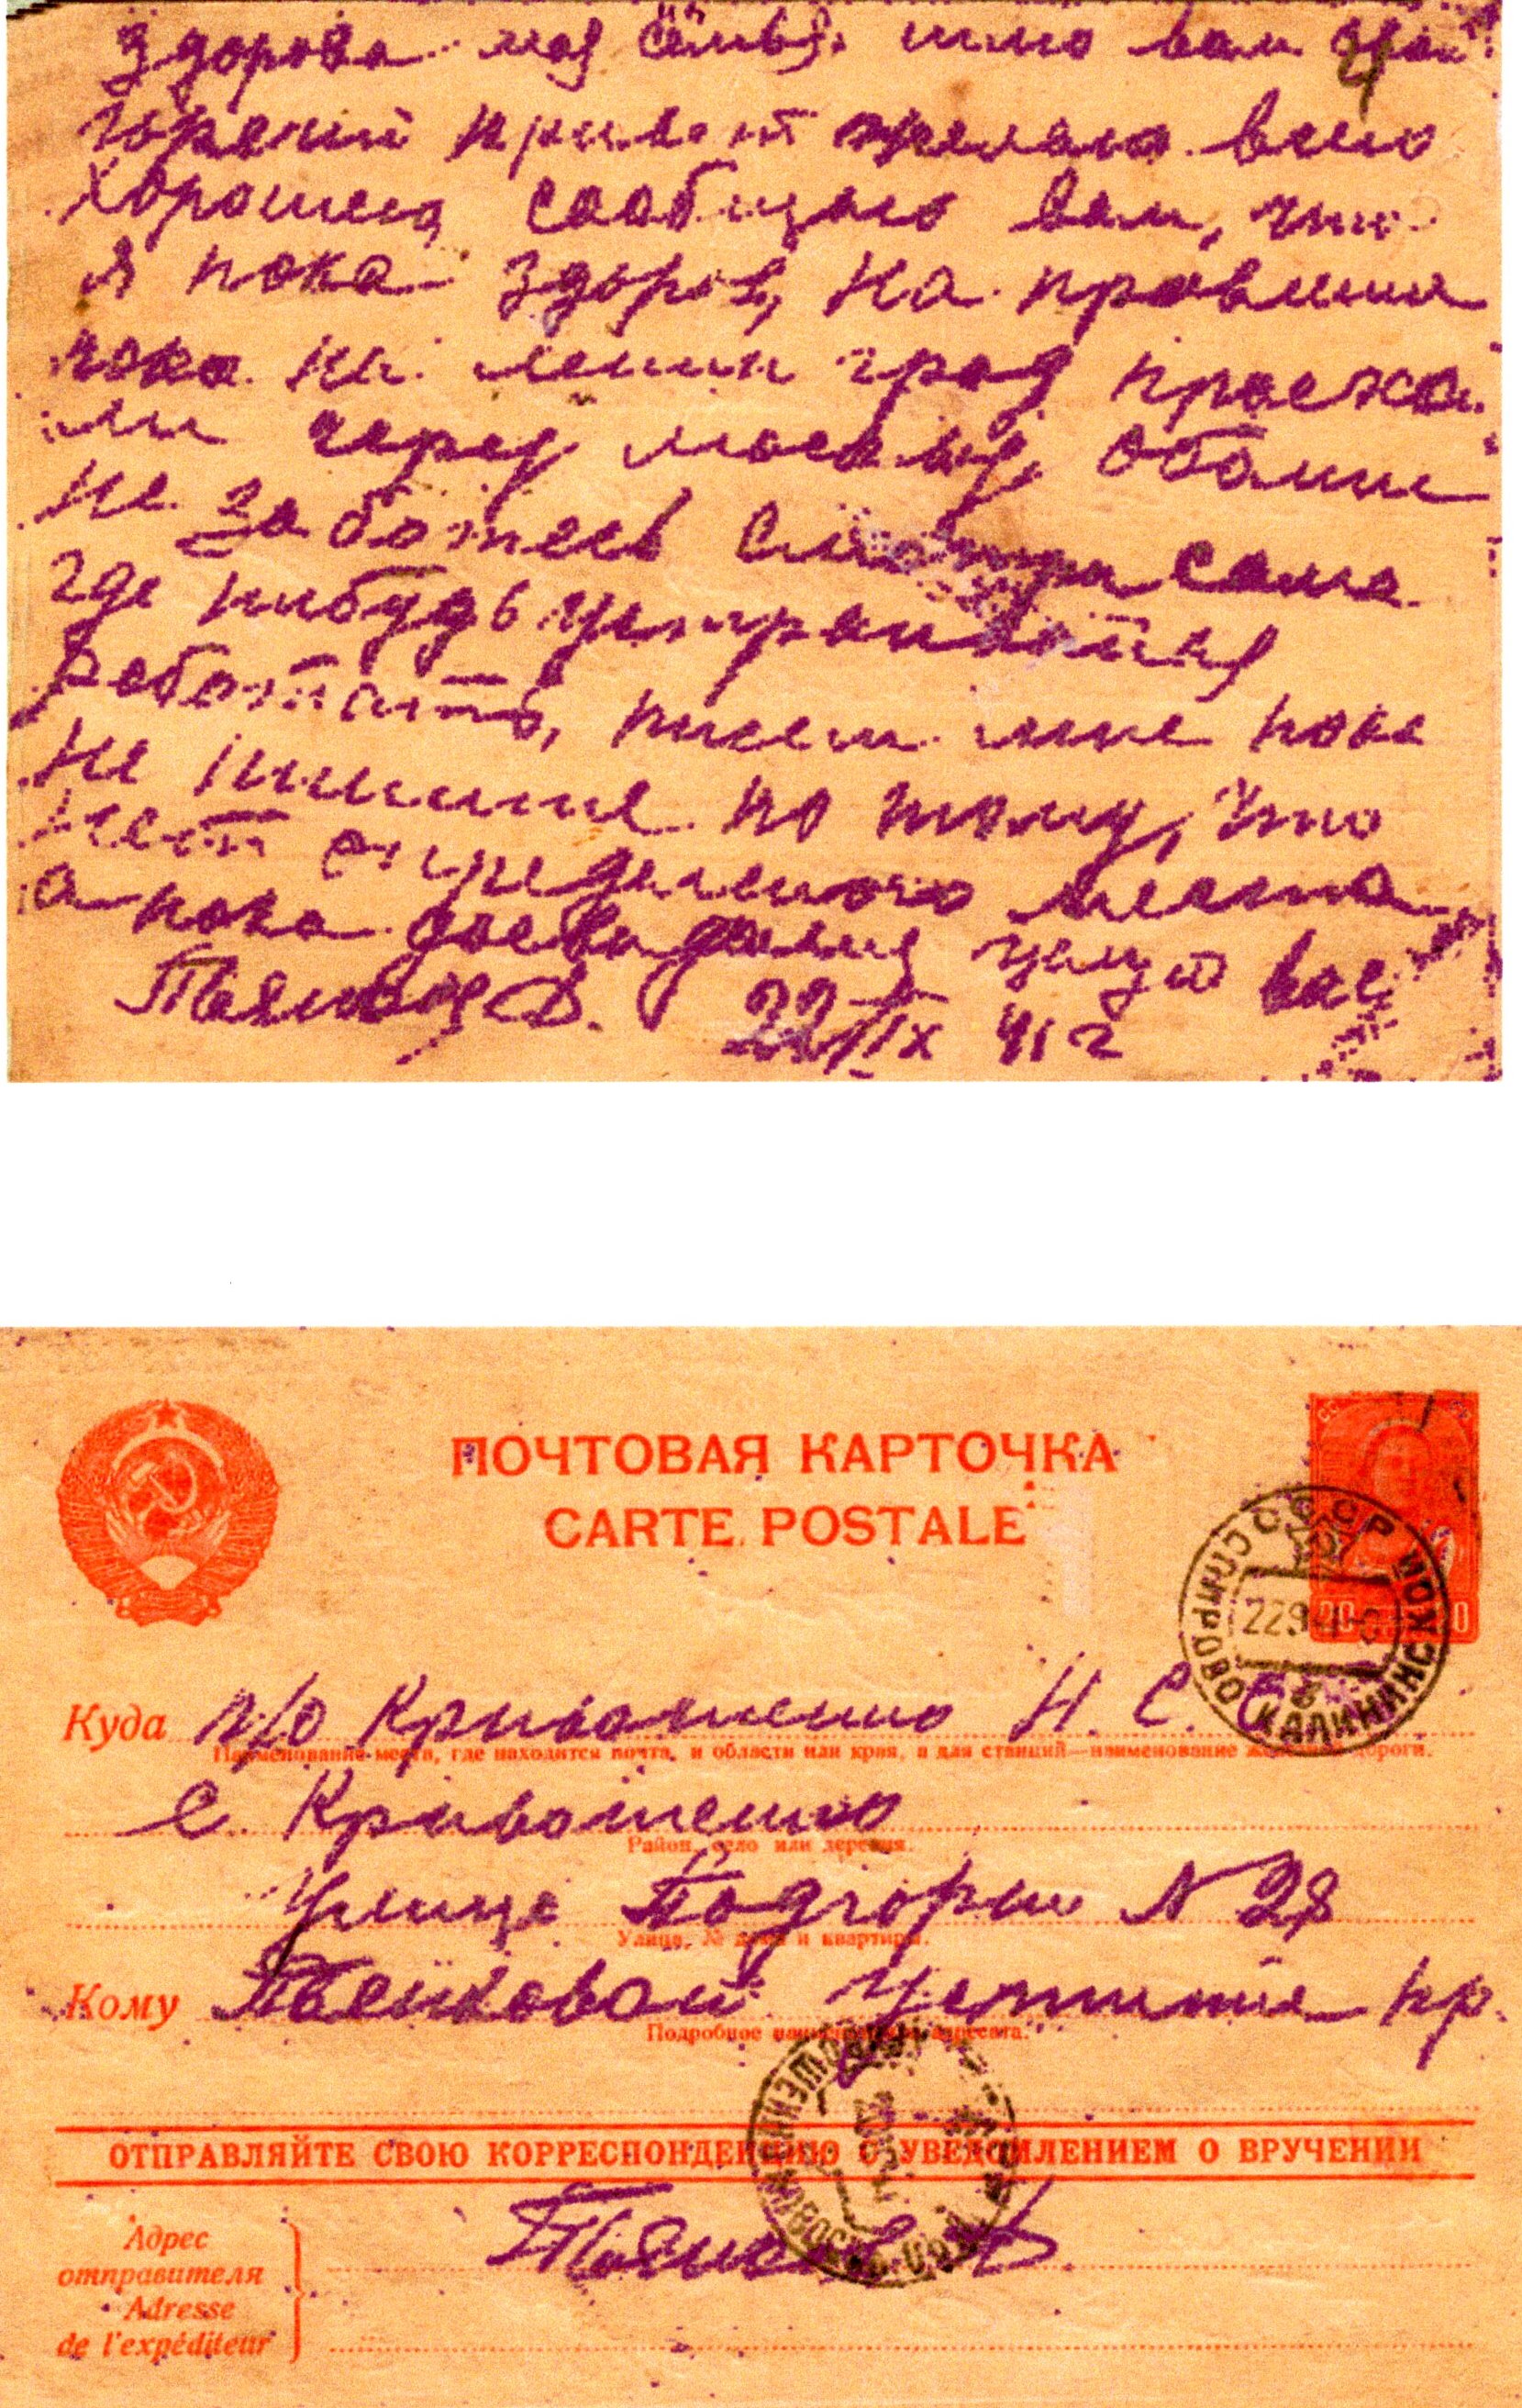 Здорова моя семья. шлю вам
горячий привет желаю всего
хорошего, сообщаю вам, что
я пока здоров, на правили
пока на ленин град проежа
ли через москву, обо мне
не заботесь смотри сама
где нибудь устраивайся
работать, писем мне пока
не пишите по тому, что
нет определеного места
а пока досвидания целую вас
Таянков Д. 22/IX 41 г
ПОЧТОВАЯ КАРТОЧКА
CARTE POSTALE
СССР
СПИРОВО КАЛИНИНСК
22 9 41
Куда п/о Кривошеино Н. С. О.
Наименование места, где находится почта, и области или края, а для станций—наименование железной дороги.
с. Кривошеино
Район, село или деревня.
Улица Подгорн N 28
Улица, № дома и квартиры.
Кому Устинье пр.
Подробное наименование адресата.
ОТПРАВЛЯЙТЕ СВОЮ КОРРЕСПОНДЕНЦИЮ С УВЕДОМЛЕНИЕМ О ВРУЧЕНИИ
КРИВОШЕИНО НОВОСИБ.
Адрес
отправителя
Adresse
de l'expéditeur